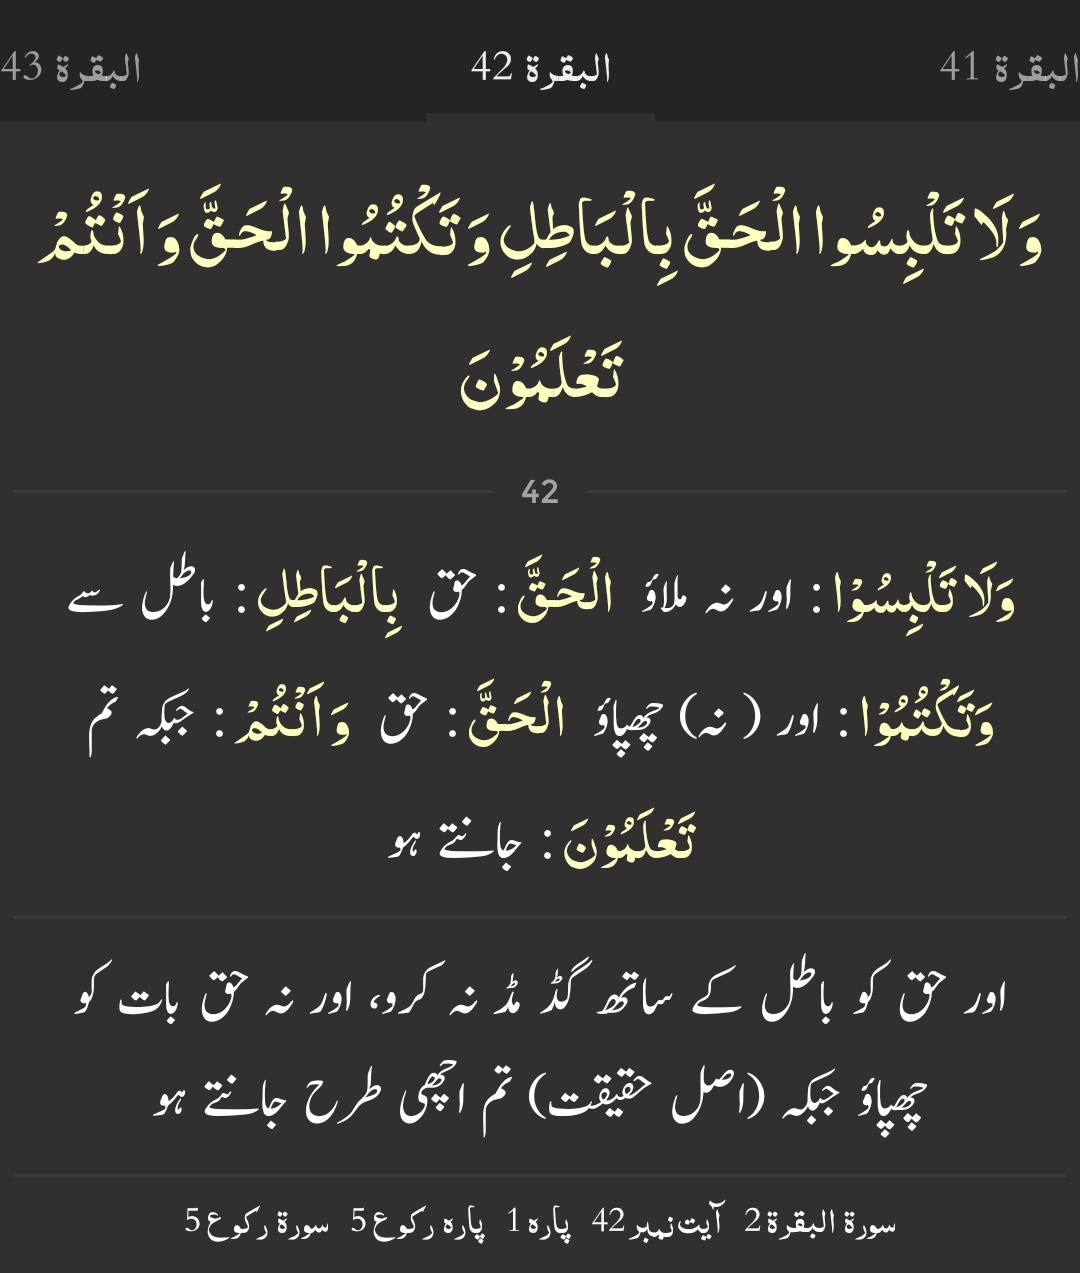 البقرة 41 البقرة 42 البقرة 43
وَلَا تَلْبِسُوا الْحَقَّ بِالْبَاطِلِ وَ تَكْتُمُوا الْحَقَّ وَ اَنْتُمْ
تَعْلَمُوْنَ
42
وَلَا تَلْبِسُوْا : اور نہ ملاؤ الْحَقَّ : حق بِالْبَاطِلِ : باطل سے
وَتَكْتُمُوْا : اور ( نہ) چھپاؤ الْحَقَّ : حق وَ اَنْتُمْ : جبکہ تم
تَعْلَمُوْنَ : جانتے ہو
اور حق کو باطل کے ساتھ گڈ مڈ نہ کرو، اور نہ حق بات کو
چھپاؤ جبکہ (اصل حقیقت) تم اچھی طرح جانتے ہو
سورة البقرة 2 آیت نمبر 42 پارہ 1 پارہ رکوع 5 سورة رکوع 5